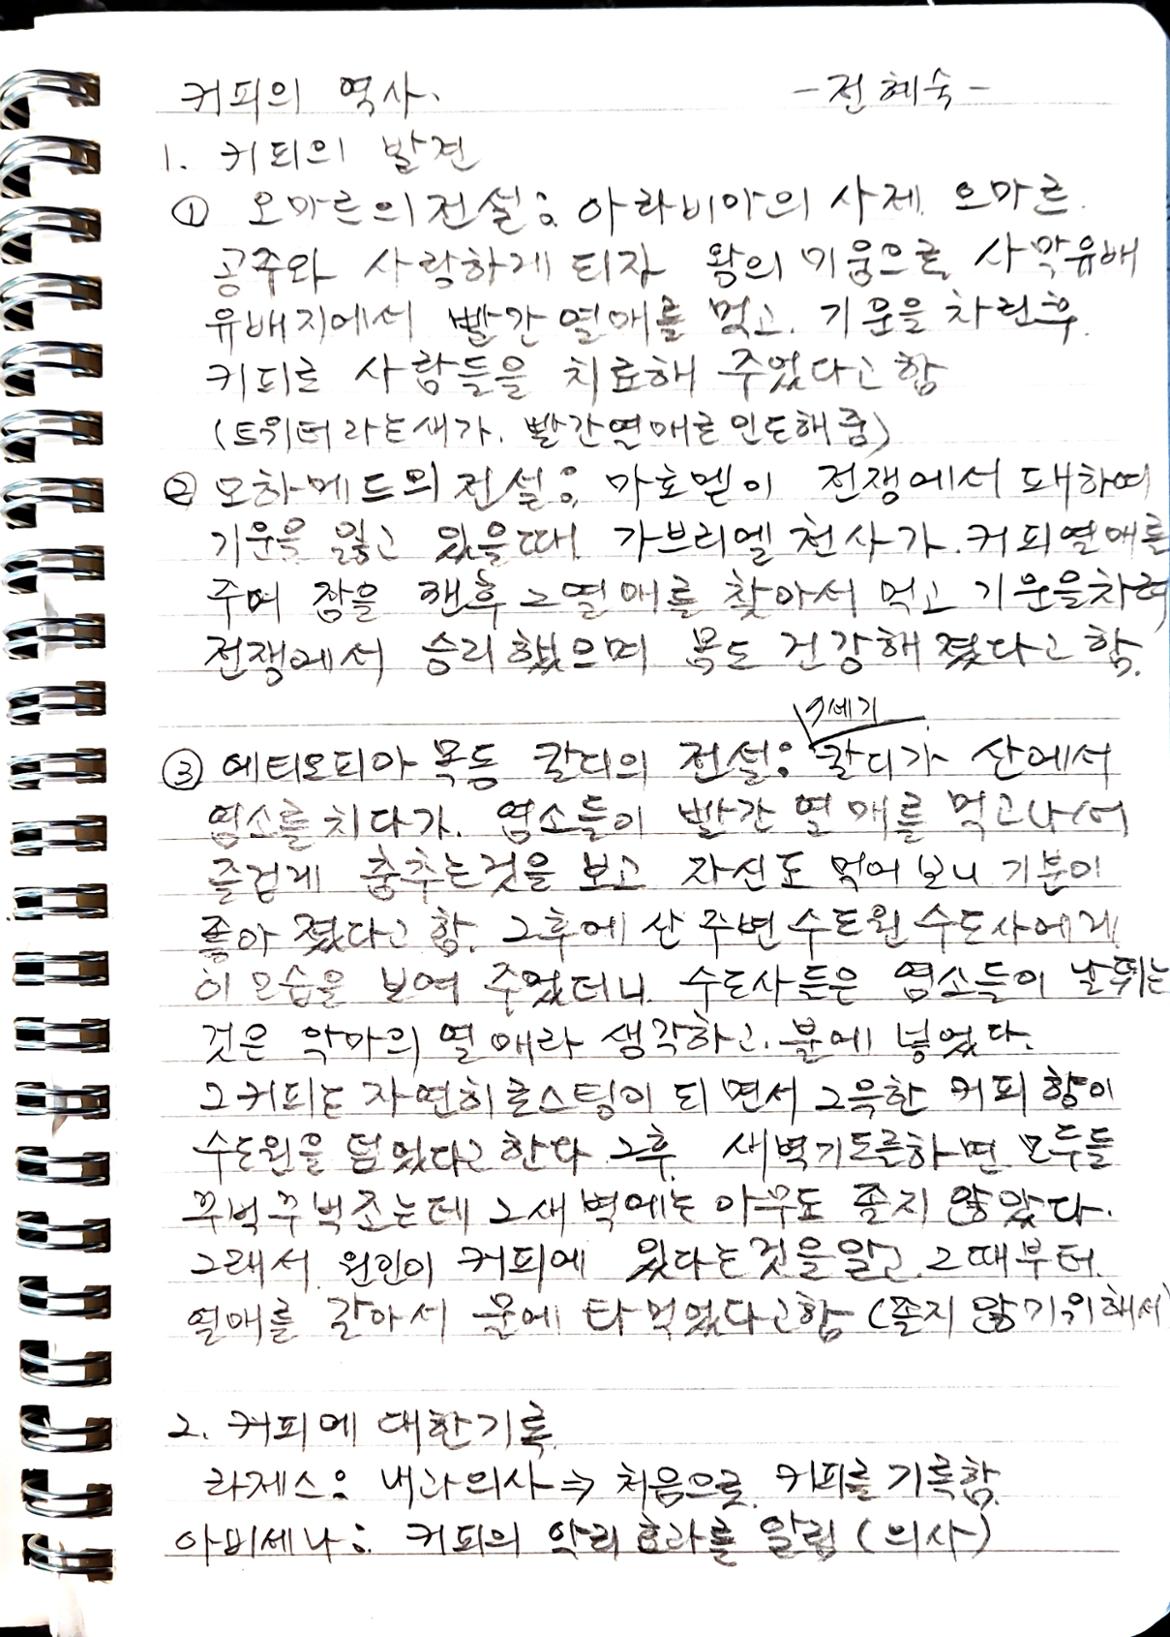 커피의 역사.
-전혜숙-
1. 커피의 발견
① 오마르의 전설: 아라비아의 사제 오마르.
공주와 사랑하게 되자 왕의 미움으로 사막유배
유배지에서 빨간 열매를 먹고. 기운을 차린후
커피로 사람들을 치료해 주었다고 함
(트위터라는새가. 빨간열매로 인도해줌)
② 모하메드의 전설: 마호멭이 전쟁에서 패하여
기운을 잃고 있을때 가브리엘 천사가 커피열매를
주며 잠을 깬후 그열매를 찾아서 먹고 기운을차려
전쟁에서 승리했으며 몸도 건강해 졌다고 함.
9세기
③ 에티오피아 목동 칼디의 전설: 칼디가 산에서
염소를 치다가. 염소들이 빨간 열매를 먹고나서
즐겁게 춤추는것을 보고 자신도 먹어보니 기분이
좋아 졌다고 함. 그후에 산 주변 수도원 수도사에게
이 모습을 보여 주었더니 수도사들은 염소들이 날뛰는
것은 악마의 열매라 생각하고. 불에 넣었다.
그커피는 자연히 로스팅이 되면서 그윽한 커피 향이
수도원을 덮었다고 한다 그후 새벽기도를하면 모두들
꾸벅꾸벅조는데 그새벽에는 아무도 졸지 않았다.
그래서 원인이 커피에 있다는것을 알고. 그때부터
열매를 갈아서 물에 타 먹었다고함 (졸지 않기위해서)
2. 커피에 대한기록
라제스: 내과의사⇒ 처음으로 커피를 기록함
아비세나: 커피의 약리효과를 알림 (의사)